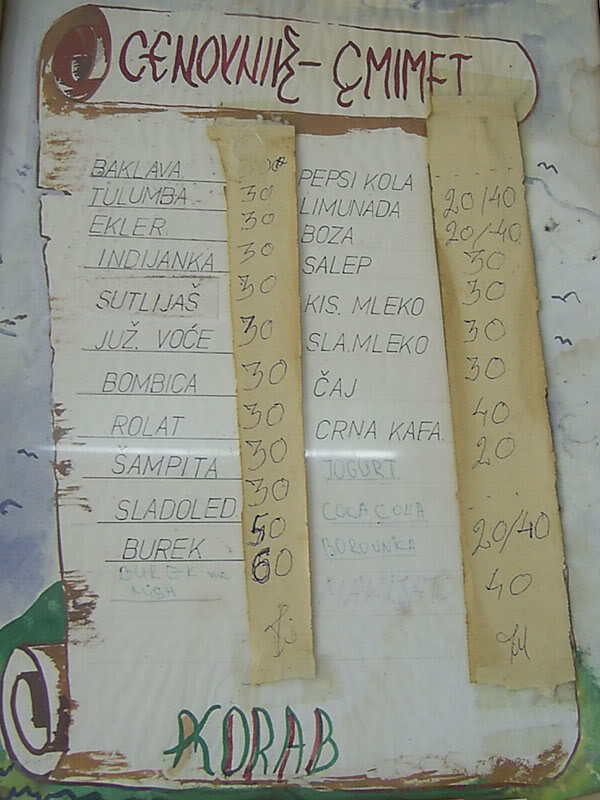 CENOVNIK - ÇMIMET
BAKLAVA
TULUMBA 30
EKLER 30
INDIJANKA 30
SUTLIJAŠ 30
JUŽ. VOĆE 30
BOMBICA 30
ROLAT 30
ŠAMPITA 30
SLADOLED 30
BUREK 50
BUREK me MISH 60
PEPSI KOLA 20/40
LIMUNADA 20/40
BOZA 30
SALEP 30
KIS. MLEKO 30
SLA.MLEKO 30
ČAJ 40
CRNA KAFA 20
JOGURT
COCA COLA 20/40
BOROVNICA 40
KORAB